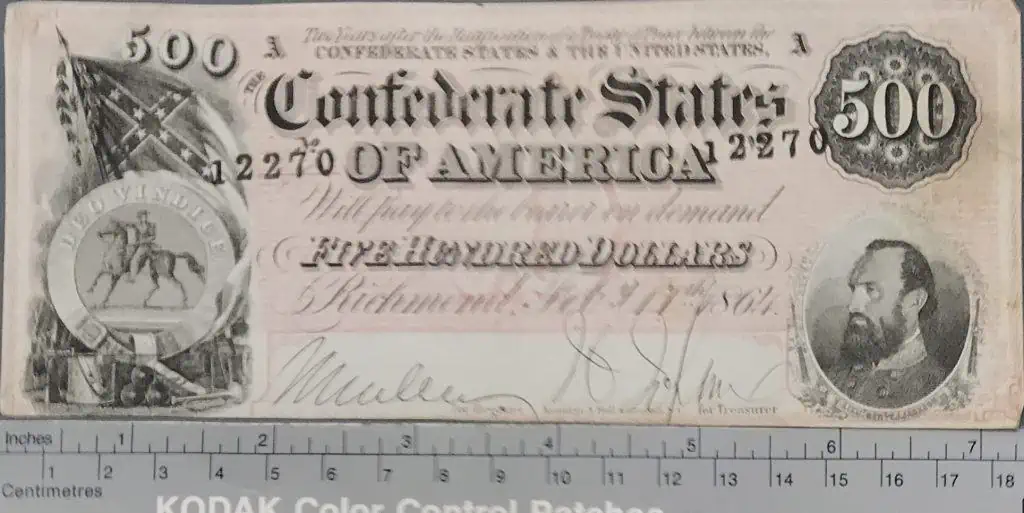 500 A Two Years after the Ratification of a Treaty of Peace between the A
CONFEDERATE STATES & THE UNITED STATES,
THE Confederate States 500
12270 No OF AMERICA 12270
Will pay to the bearer on demand
DEO VINDICE
FIVE HUNDRED DOLLARS
Richmond Feb 17th 1864.
for Register for Treasurer
Inches 1 2 3 4 5 6 7
1 2 3 4 5 6 7 8 9 10 11 12 13 14 15 16 17 18
Centimetres
KODAK Color Control Patches